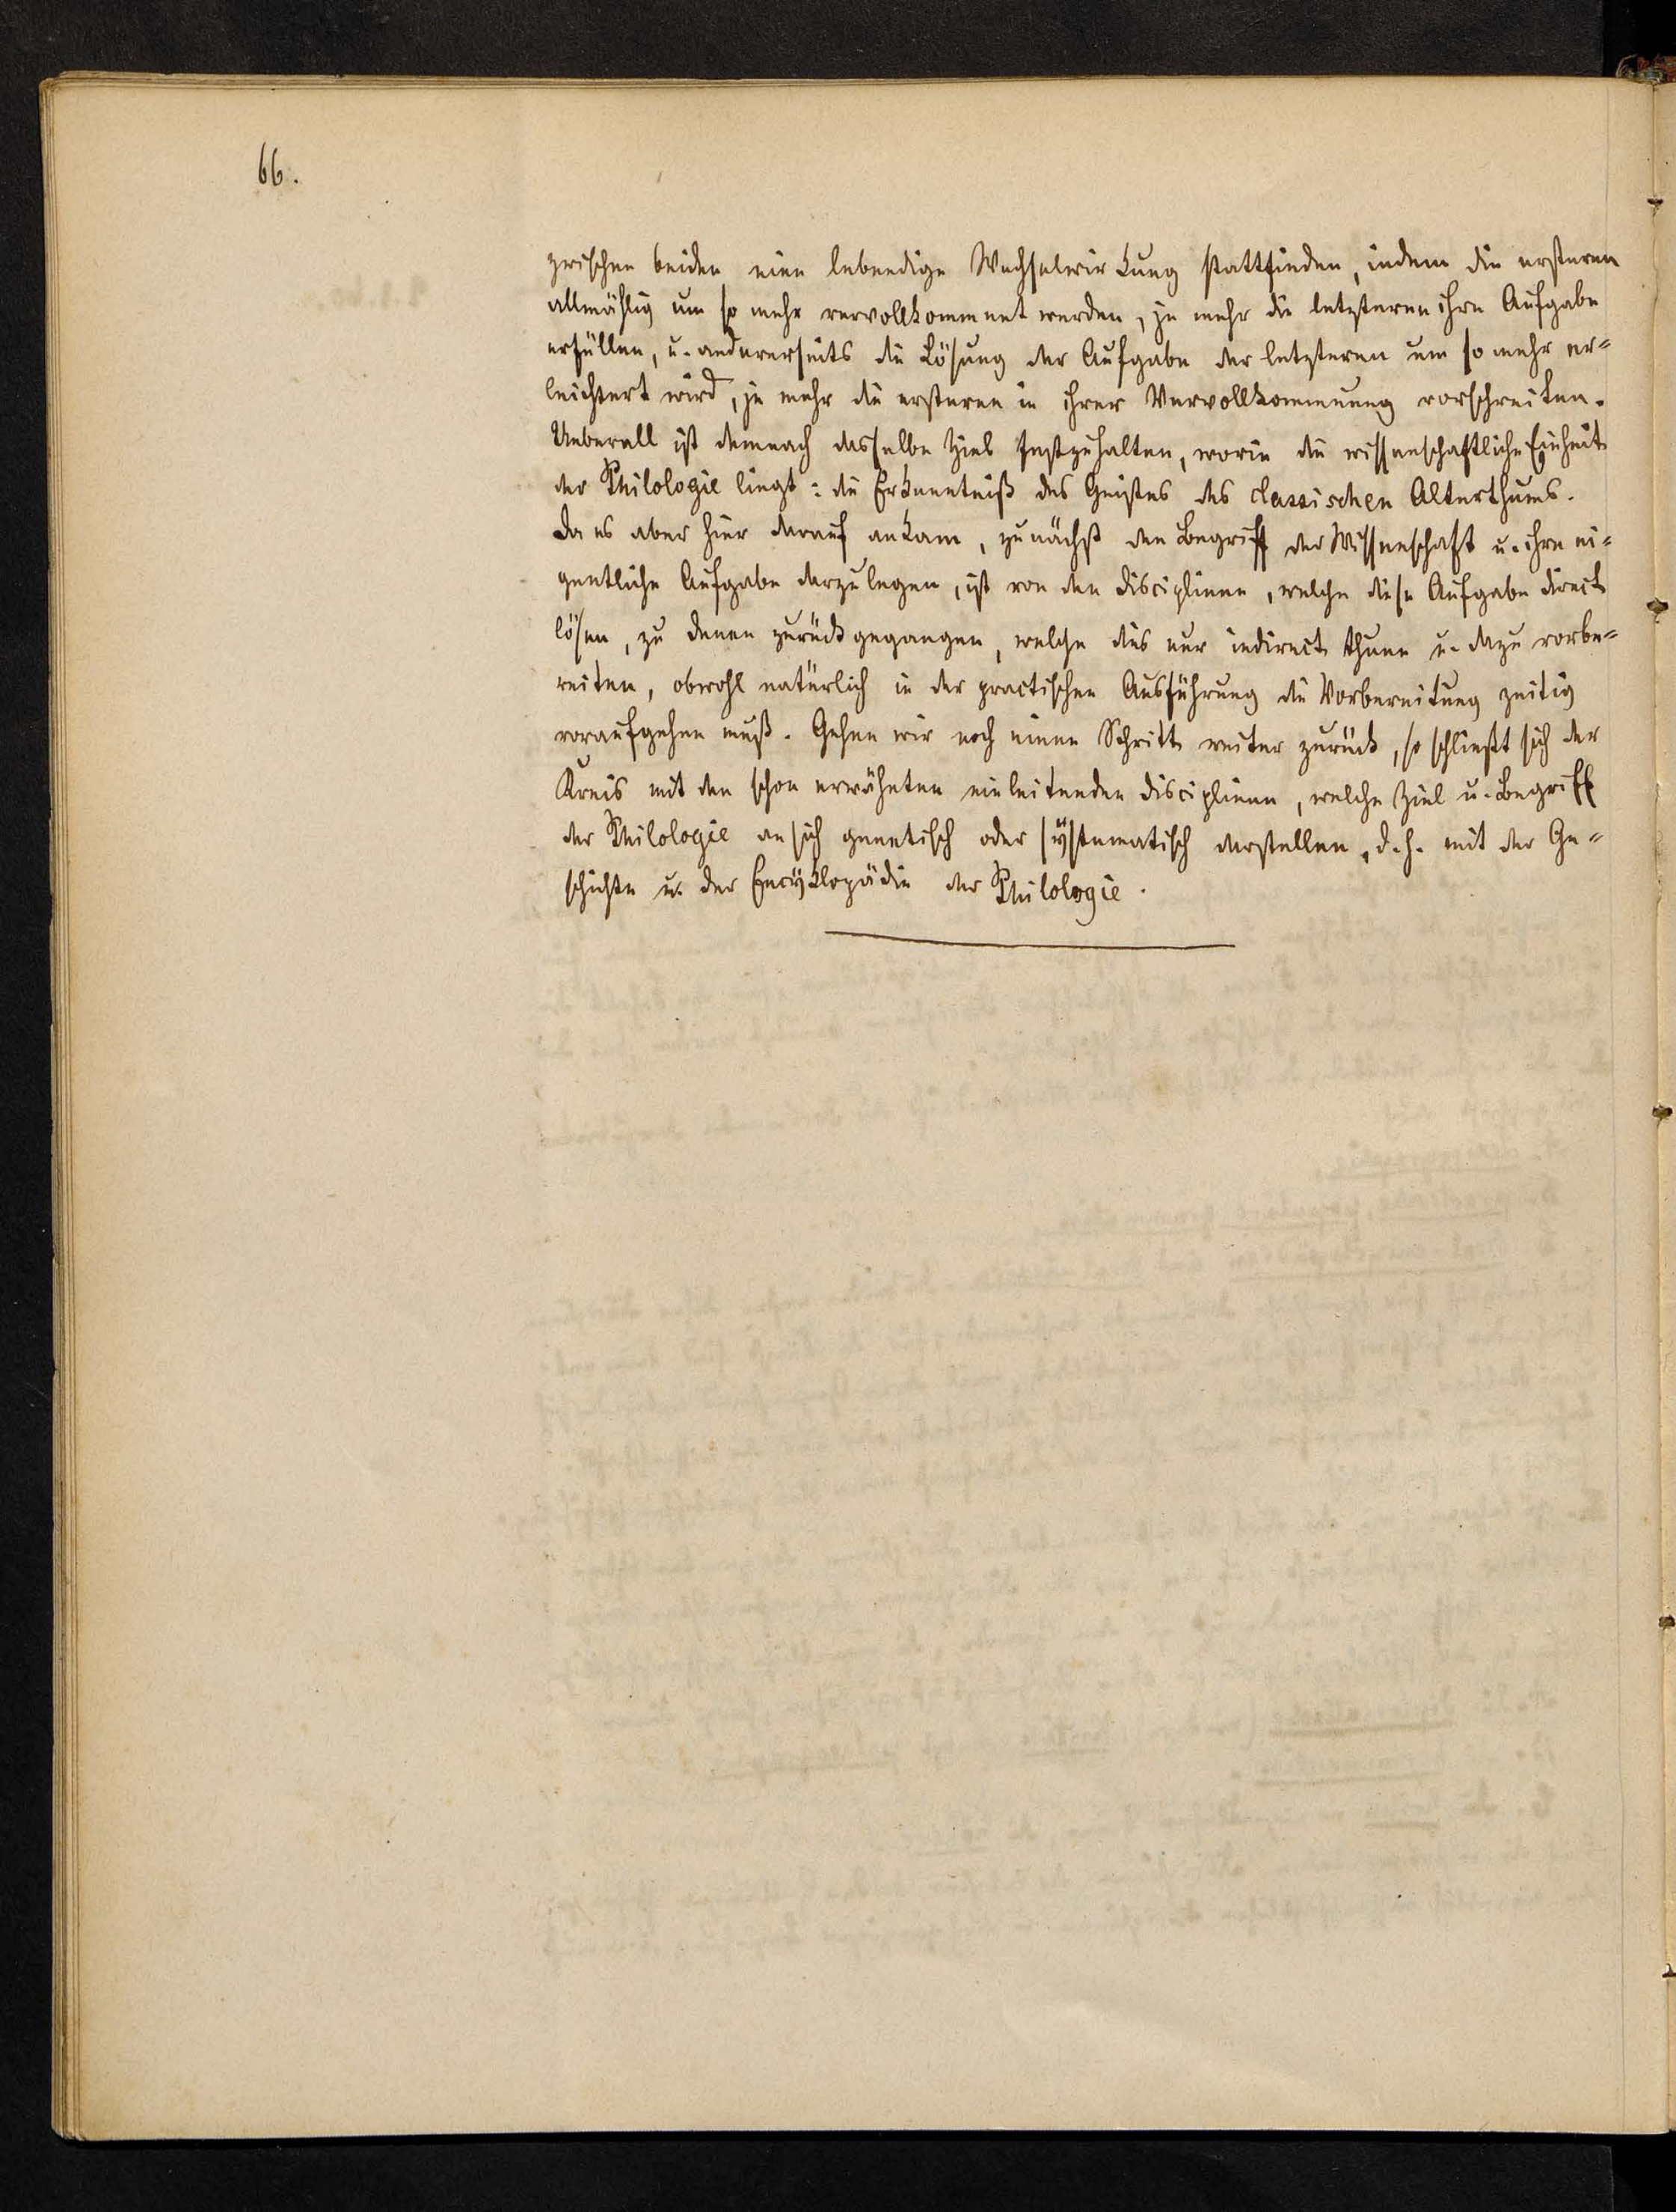 66.
zwischen beiden eine lebendige Wechselwirkung stattfinden, indem die ersteren
allmählig um so mehr vervollkommnet werden, je mehr die letzteren ihre Aufgabe
erfüllen, u. andererseits die Lösung der Aufgabe der letzteren um so mehr er=
leichtert wird, je mehr die ersteren in ihrer Vervollkommnung vorschreiten.
Ueberall ist demnach dasselbe Ziel festzuhalten, worin die wissenschaftliche Einheit
der Philologie liegt: die Erkenntniß des Geistes des classischen Alterthums.
Da es aber hier darauf ankam, zunächst den Begriff der Wissenschaft u. ihre ei=
gentliche Aufgabe darzulegen, ist von den Disciplinen, welche diese Aufgabe direct
lösen, zu denen zurückgegangen, welche dies nur indirect thuen u. dazu vorbe=
reiten, obwohl natürlich in der practischen Ausführung die Vorbereitung zeitig
voraufgehen muß. Gehen wir noch einen Schritt weiter zurück, so schließt sich der
Kreis mit den schon erwähnten einleitenden Disciplinen, welche Ziel u. Begriff
der Philologie an sich genetisch oder systematisch darstellen, d.h. mit der Ge=
schichte u. der Encyklopädie der Philologie.